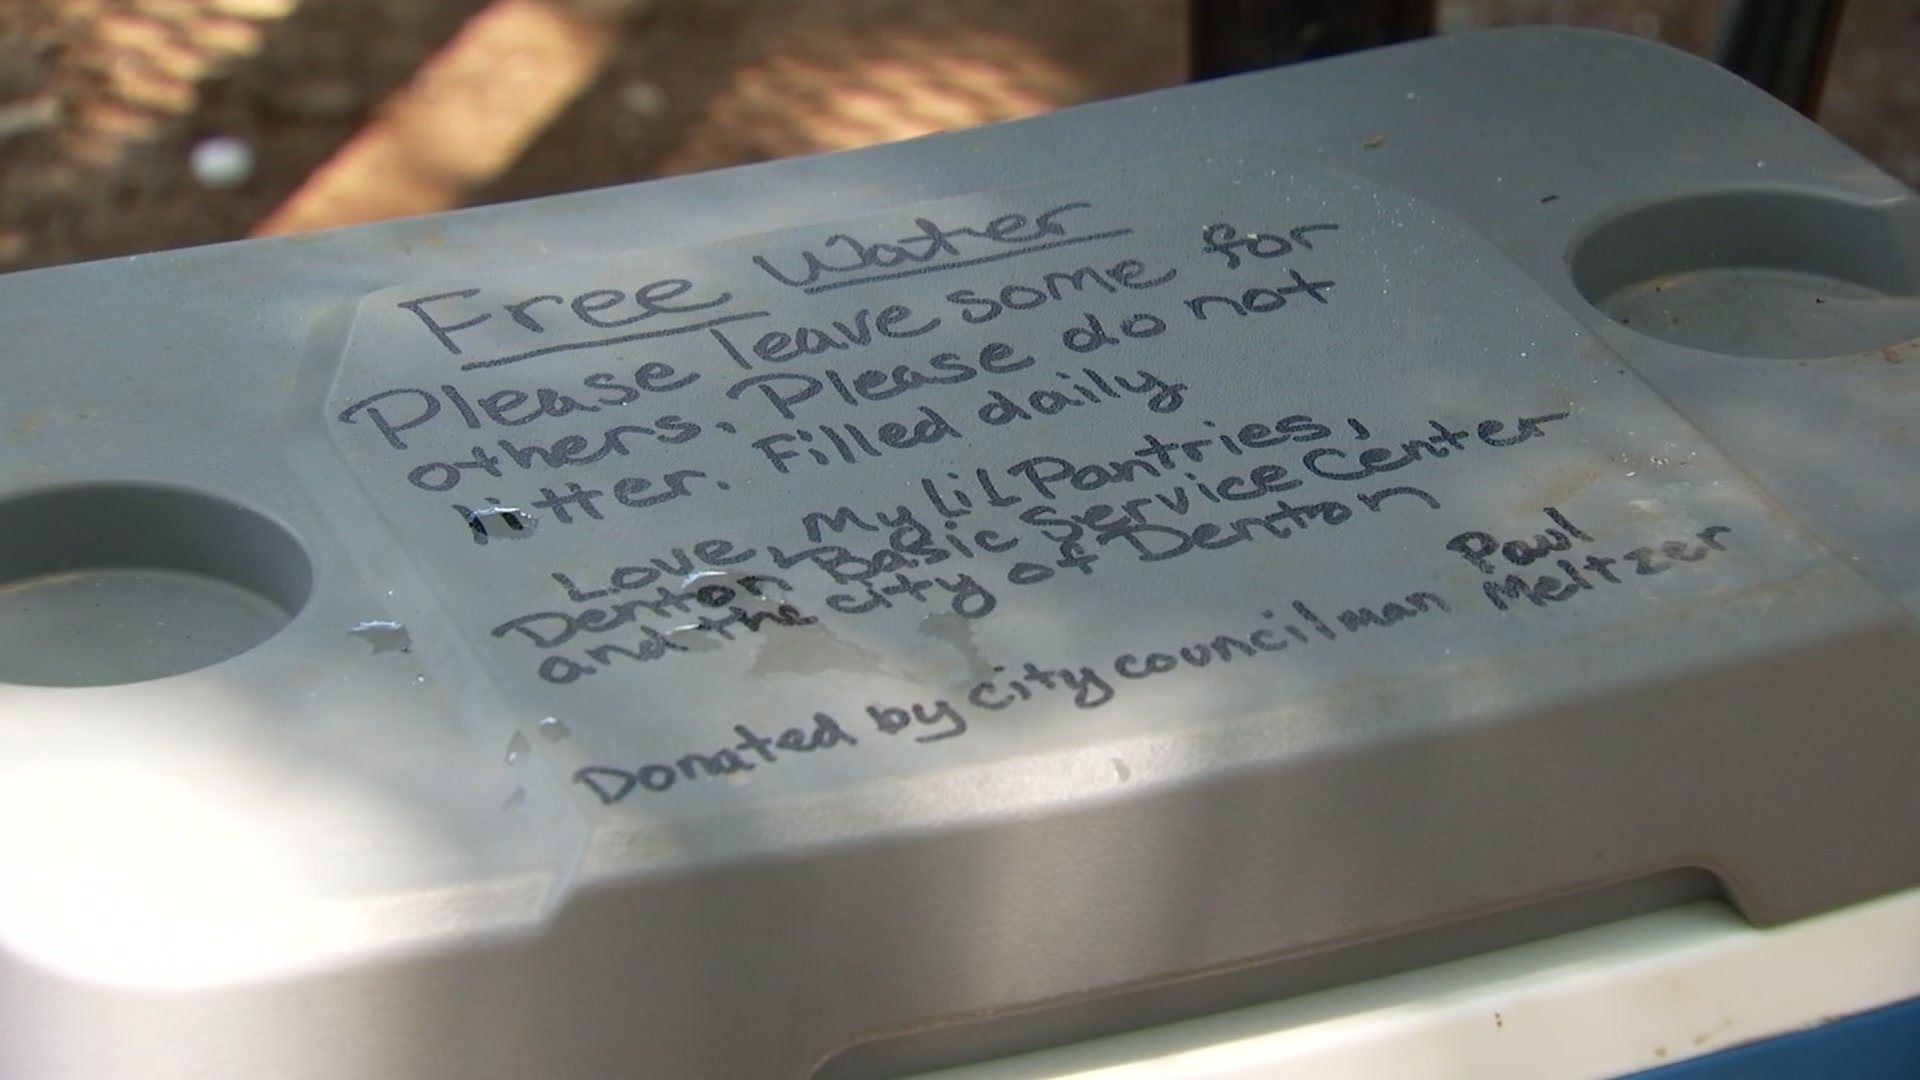 Free Water
Please leave some for
others. Please do not
litter. Filled daily
Love, My Lil Pantries,
Denton Basic Service Center
and the city of Denton
Donated by city councilman Paul
Meltzer